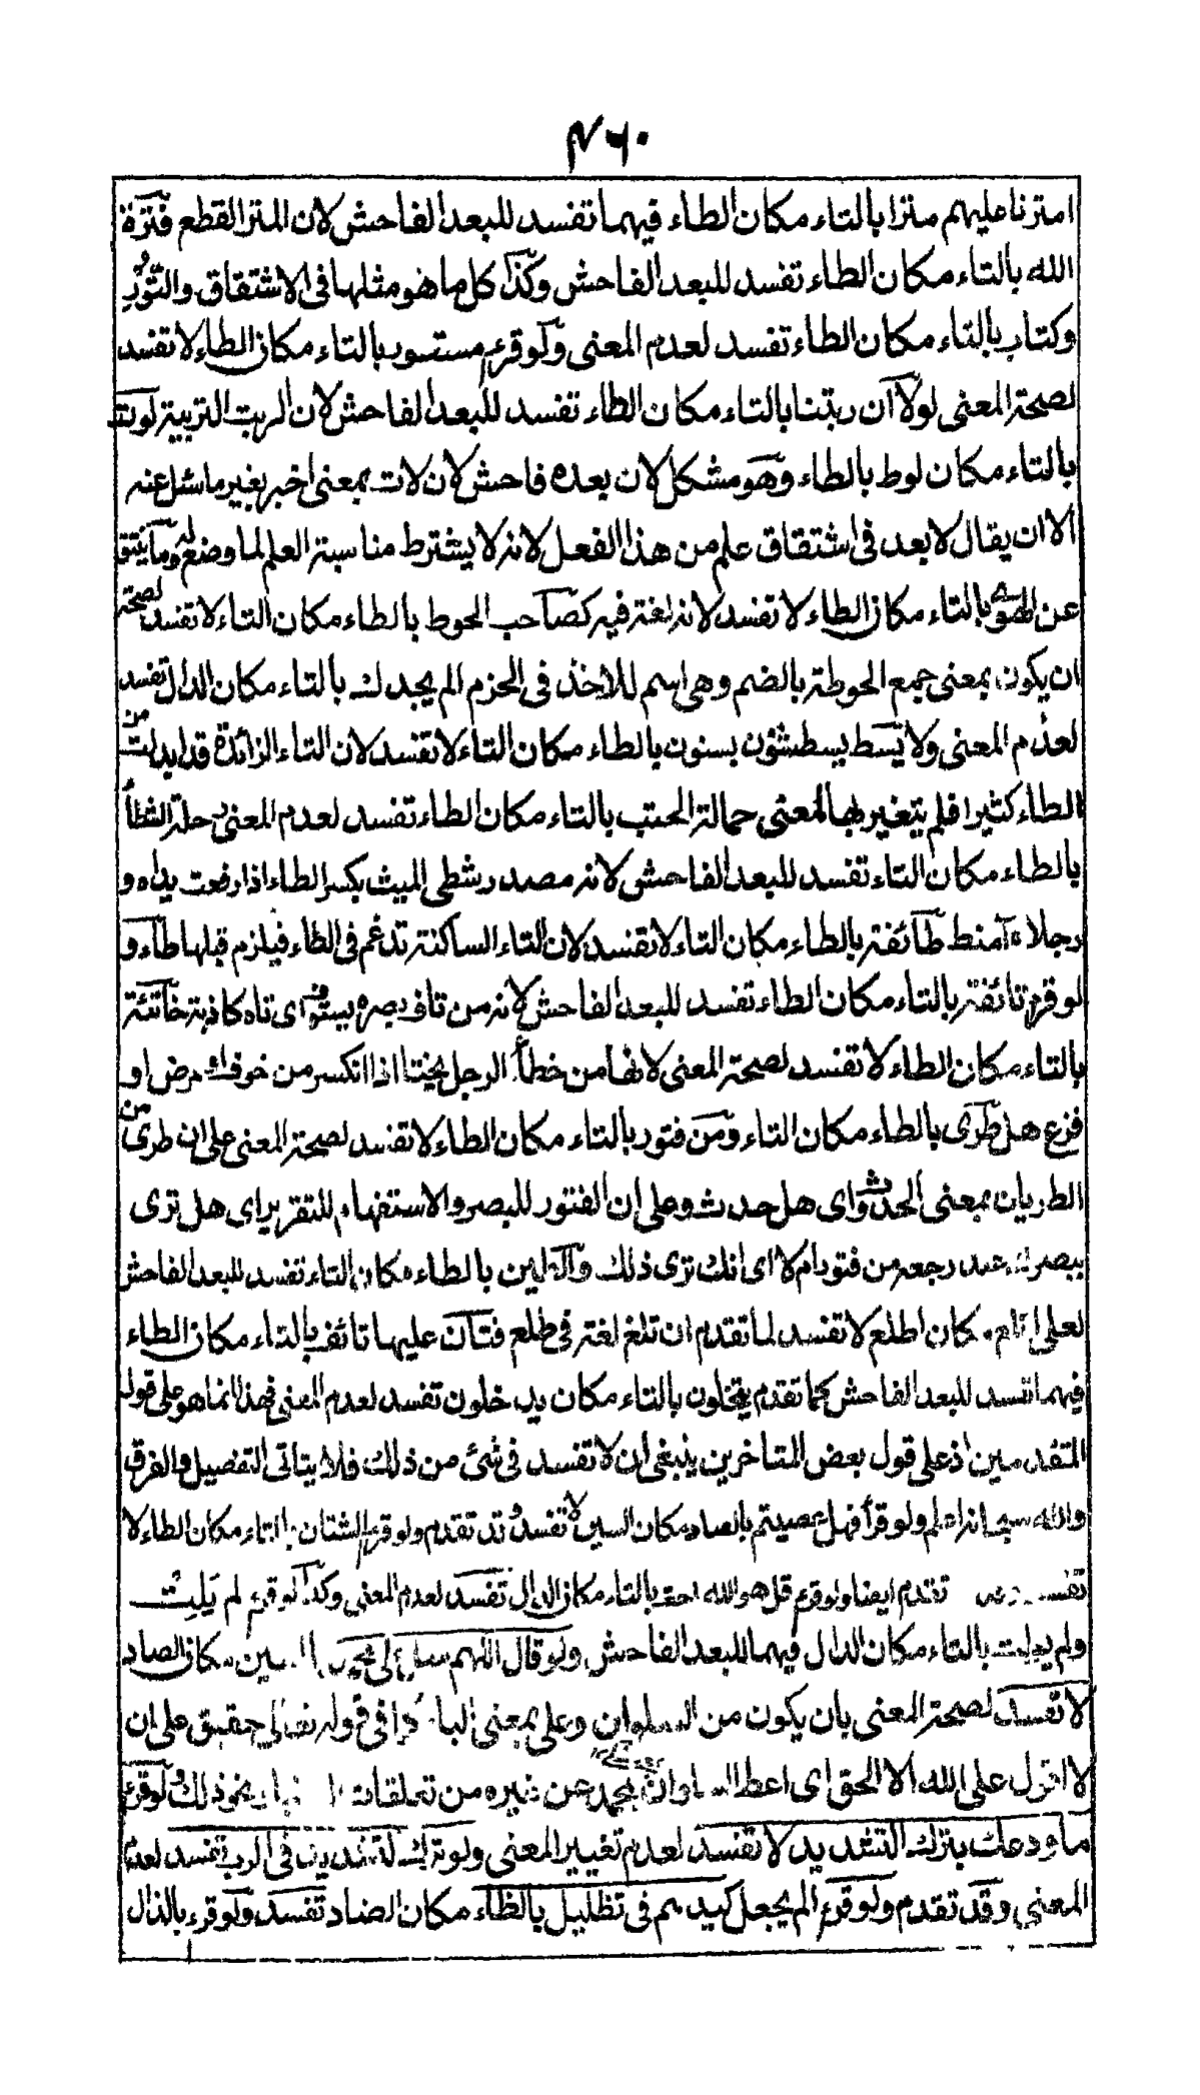 ٤٦٠
امترنا عليهم مترا بالتاء مكان الطاء فيهما تفسد للبعد الفاحش لان المتر القطع فترة
الله بالتاء مكان الطاء تفسد للبعد الفاحش وكذا كل ما هو مثلها فى الاشتقاق والتور
وكتاب بالتاء مكان الطاء تفسد لعدم المعنى ولو قرئ مستور بالتاء مكان الطاء لا تفسد
لصحة المعنى لولا ان ربتنا بالتاء مكان الطاء تفسد للبعد الفاحش لان الربت التربية لوت
بالتاء مكان لوط بالطاء وهو مشكل لان بعده فاحش لان لات بمعنى اخبر بغير ما سئل عنه
الا ان يقال لا بعد فى اشتقاق علم من هذا الفعل لانه لا يشترط مناسبة العلم لما وضع له وما ينتق
عن الهوى بالتاء مكان الطاء لا تفسد لانه لغة فيه كصاحب الحوط بالطاء مكان التاء لا تفسد لصحة
ان يكون بمعنى جمع الحوطة بالضم وهى اسم للاخذ فى الحزم الم يجدك بالتاء مكان الدال تفسد
لعدم المعنى ولا يسط يسطثنون بسنون بالطاء مكان التاء لا تفسد لان التاء الزائدة قد ابدلت من
الطاء كثيرا فلم يتغير بها المعنى حمالة الحتب بالتاء مكان الطاء تفسد لعدم المعنى رحلة الشطأ
بالطاء مكان التاء تفسد للبعد الفاحش لانه مصدر شطى الميت بكسر الطاء اذا رفعت يداه و
رجلاه آمنط طائفة بالطاء مكان التاء لا تفسد لان التاء الساكنة تدغم فى الطاء فيلزم قبلها طاء و
لو قرئ تائفة بالتاء مكان الطاء تفسد للبعد الفاحش لانه من تاف بصره يتوف اى تاه كاذبة خاتئة
بالتاء مكان الطاء لا تفسد لصحة المعنى لانها من خطأ الرجل يختا اذا انكسر من خوف او مرض او
فزع هل طرى بالطاء مكان التاء ومن فتور بالتاء مكان الطاء لا تفسد لصحة المعنى على ان طرى من
الطريان بمعنى الحدوث اى هل حدث وعلى ان الفتور للبصر والاستفهام للتقرير اى هل ترى
ببصرك عند رجعه من فتور ام لا اى انك ترى ذلك والطين بالطاء مكان التاء تفسد للبعد الفاحش
لعلى اتلع مكان اطلع لا تفسد لما تقدم ان تلع لغة فى طلع فتان عليها تائف بالتاء مكان الطاء
فيهما تفسد للبعد الفاحش كما تقدم يتخلون بالتاء مكان يدخلون تفسد لعدم المعنى فهذا انما هو على قول
المتقدمين اذ على قول بعض المتاخرين ينبغى ان لا تفسد فى شئ من ذلك فلا يتاتى التفصيل والفرق
والله سبحانه اعلم ولو قرأ فهل عصيتم بالصاد مكان السين لا تفسد وقد تقدم ولو قرئ الشتان بالتاء مكان الطاء لا
تفسد تقدم ايضا ولو قرئ قل هو الله احت بالتاء مكان الدال تفسد لعدم المعنى وكذا لو قرئ لم يلت
ولم يولت بالتاء مكان الدال فيهما للبعد الفاحش ولو قال اللهم سل على محمد بالسين مكان الصاد
لا تفسد لصحة المعنى بان يكون من السلوان وعلى بمعنى الباء كما فى قوله تعالى حقيق على ان
لا اقول على الله الا الحق اى اعط السلوان بمحمد عن غيره من تعلقات نحو ذلك ولو قرئ
ما ودعك بترك التشديد لا تفسد لعدم تغيير المعنى ولو ترك التشديد فى الرب تفسد لعدم
المعنى وقد تقدم ولو قرئ الم يجعل كيدهم فى تظليل بالظاء مكان الضاد تفسد ولو قرء بالذال